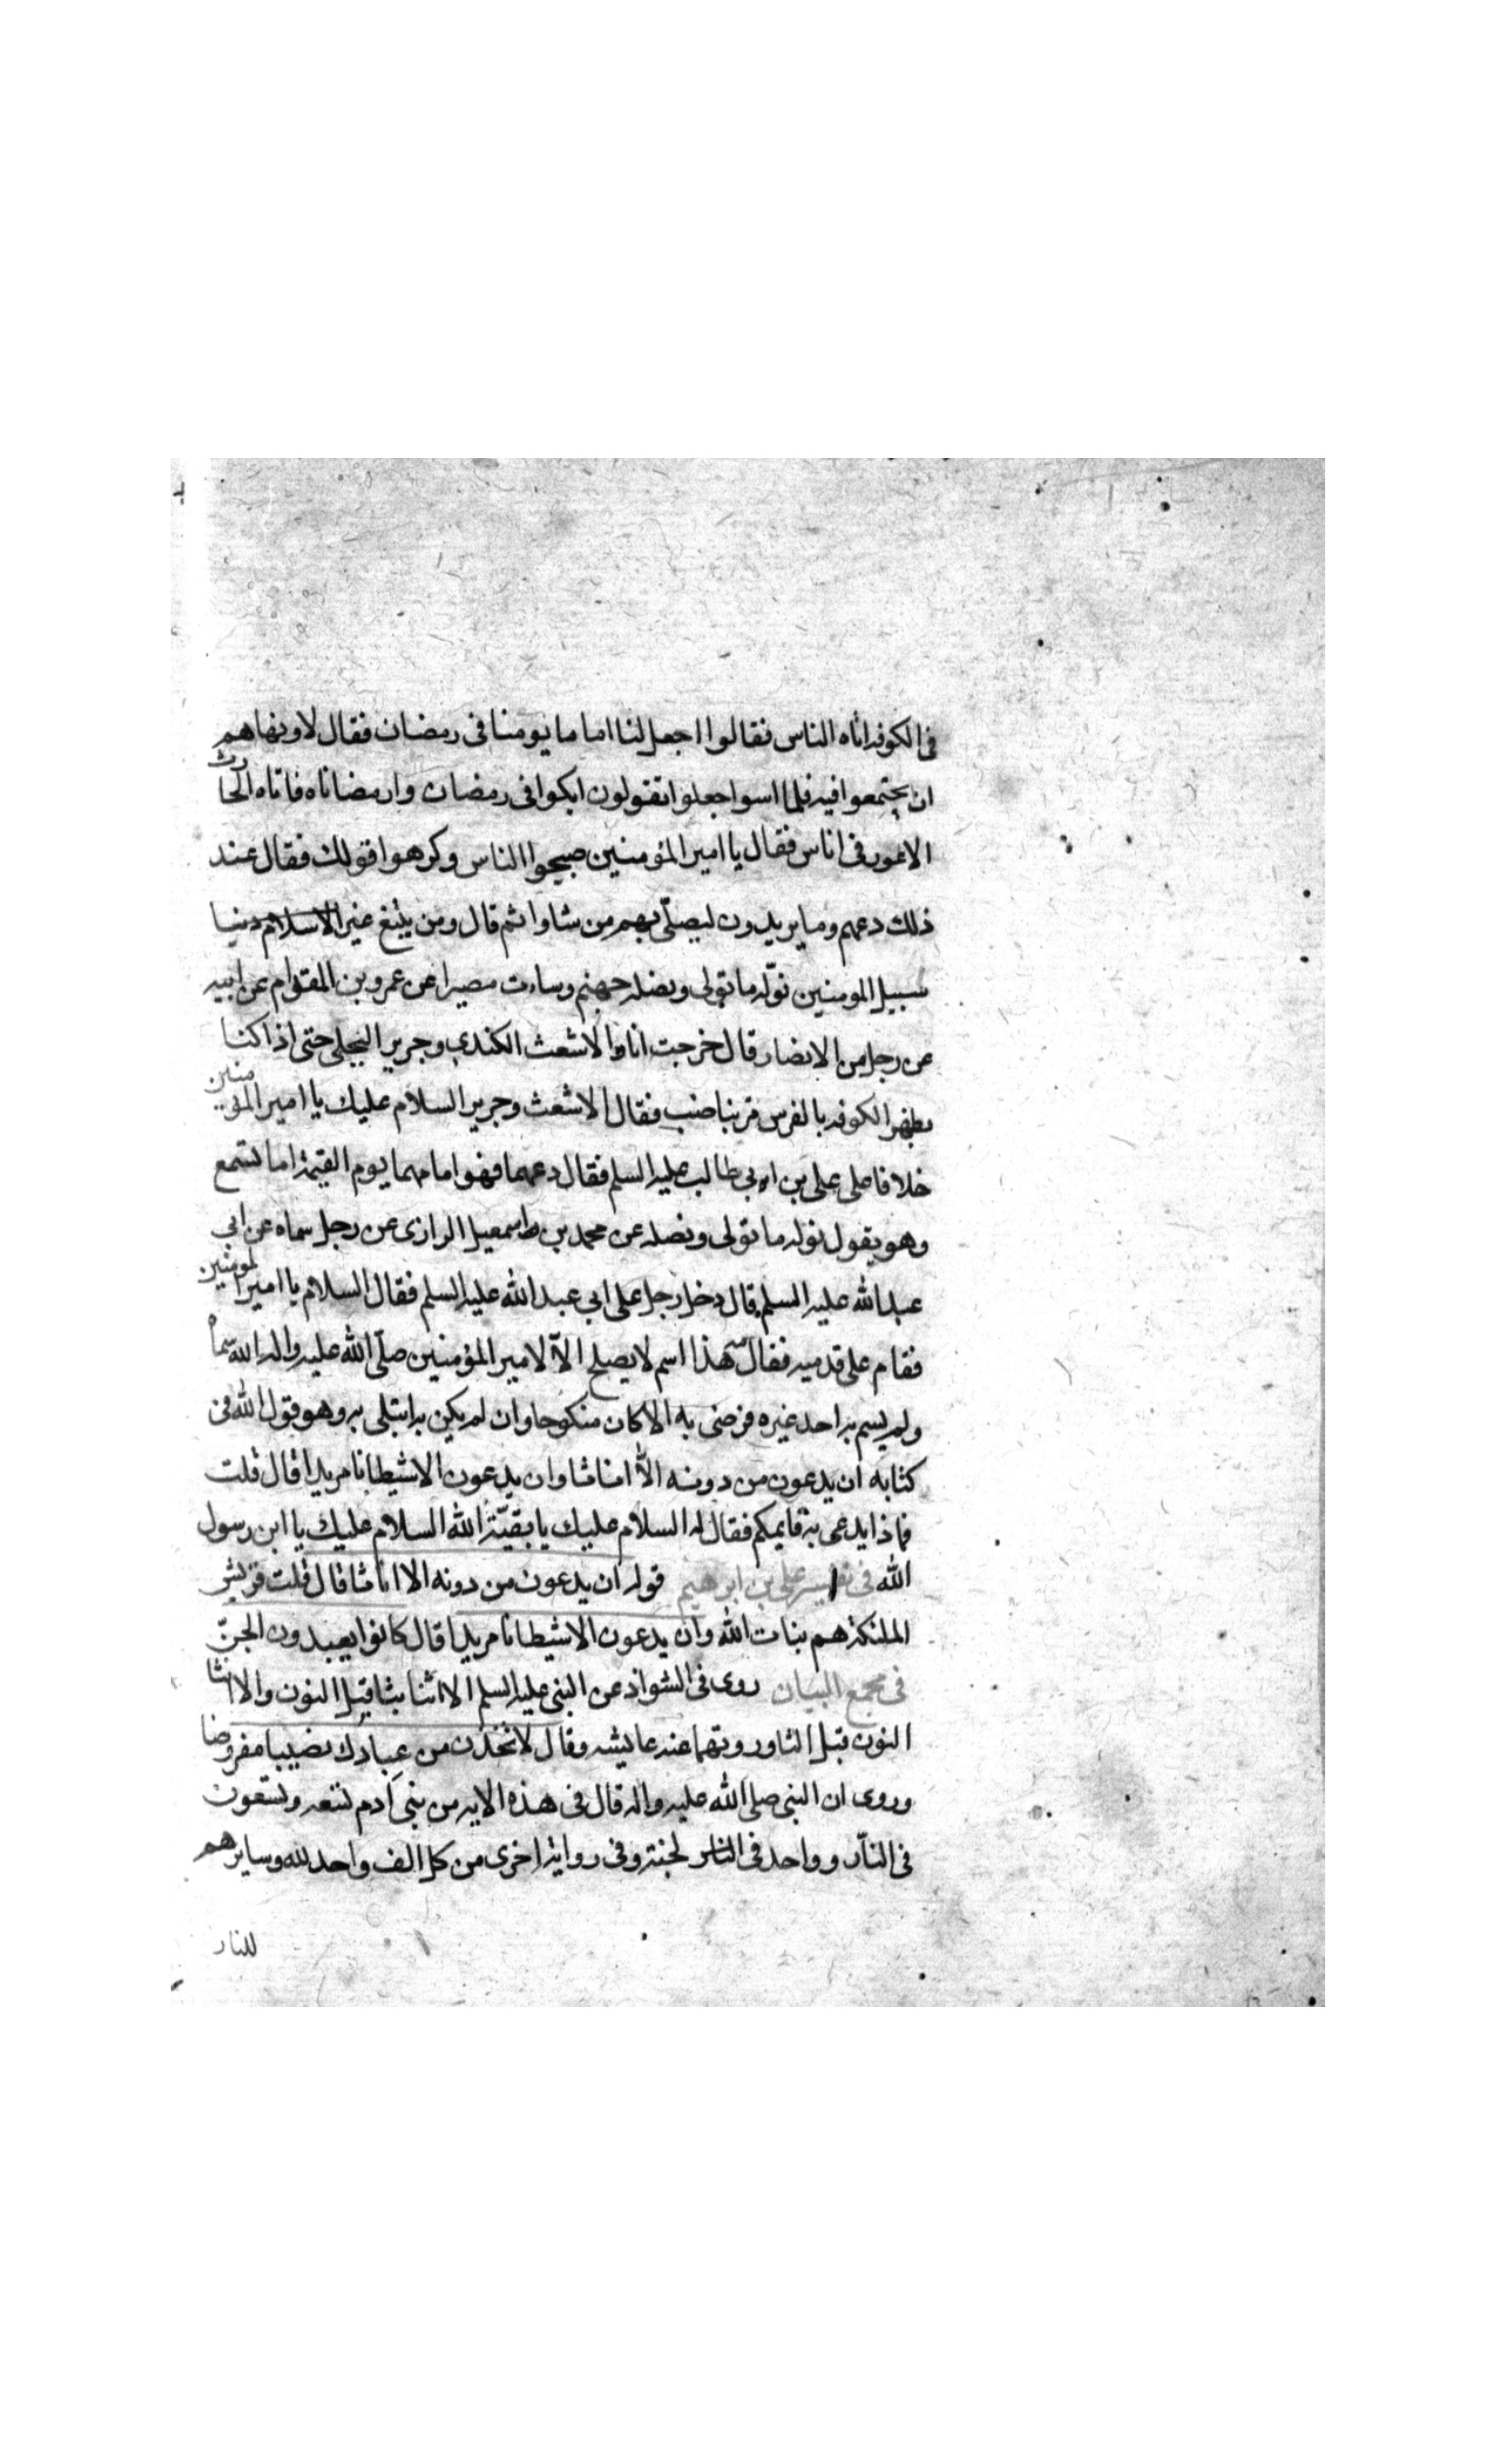 فى الكوفه اتاه الناس فقالوا اجعل لنا اماما يومنا فى رمضان فقال لا ونهاهم
ان يجتمعوا فيه فلما امسوا جعلوا تقولون ابكوا فى رمضان وارمضاناه فاتاه الحارث
الاعور فى اناس فقال يا امير المؤمنين صيحوا الناس وكرهوا قولك فقال عند
ذلك دعهم وما يريدون ليصلّى بهم من شاوا ثم قال ومن يتبغ غير الاسلام دينا
سبيل المومنين نوّله ما تولى ونصله جهنم وساءت مصيرا عن عمرو بن المقوام عن ابيه
عن رجل من الانصار قال خرجت انا والاشعث الكندى وجرير البجلى حتى اذا كنا
بظهر الكوفه بالفرس مر بنا ضب فقال الاشعث وجرير السلام عليك يا امير المؤمنين
خلافا على على بن ابى طالب عليه السلم فقال دعهما فهو امامهما يوم القيمة اما تسمع
وهو يقول نوله ما تولى ونصله عن محمد بن اسمعيل الرازى عن رجل سماه عن ابى
عبد الله عليه السلم قال دخل رجل على ابى عبد الله عليه السلم فقال السلام يا امير المومنين
فقام على قدميه فقال مه هذا اسم لا يصلح الاّ لامير المؤمنين صلّى الله عليه واله الله سماه
ولم يسم به احد غيره فرضى به الا كان منكوحا وان لم يكن به ابتلى به وهو قول الله فى
كتابه ان يدعون من دونه الاّ اناثا وان يدعون الا شيطانا مريدا قال قلت
فماذا يدعى به قايمكم فقال له السلام عليك يا بقيّة الله السلام عليك يا ابن رسول
الله فى تفسير على بن ابرهيم قوله ان يدعون من دونه الا اناثا قال قلت قريش
الملئكة هم بنات الله وان يدعون الا شيطانا مريدا قال كانوا يعبدون الجنّ
فى مجمع البيان روى فى الشواذ عن النبى عليه السلم الا اثنا بثا قبل النون والا انثا
النون قبل الثا وروتهما عنه عايشه وقال لاتخذن من عبادك نصيبا مفروضا
وروى ان النبى صلى الله عليه واله قال فى هذه الايه من بنى آدم تسعه وتسعون
فى النّار وواحد فى الجنة وفى رواية اخرى من كل الف واحد لله وسايرهم
للنار